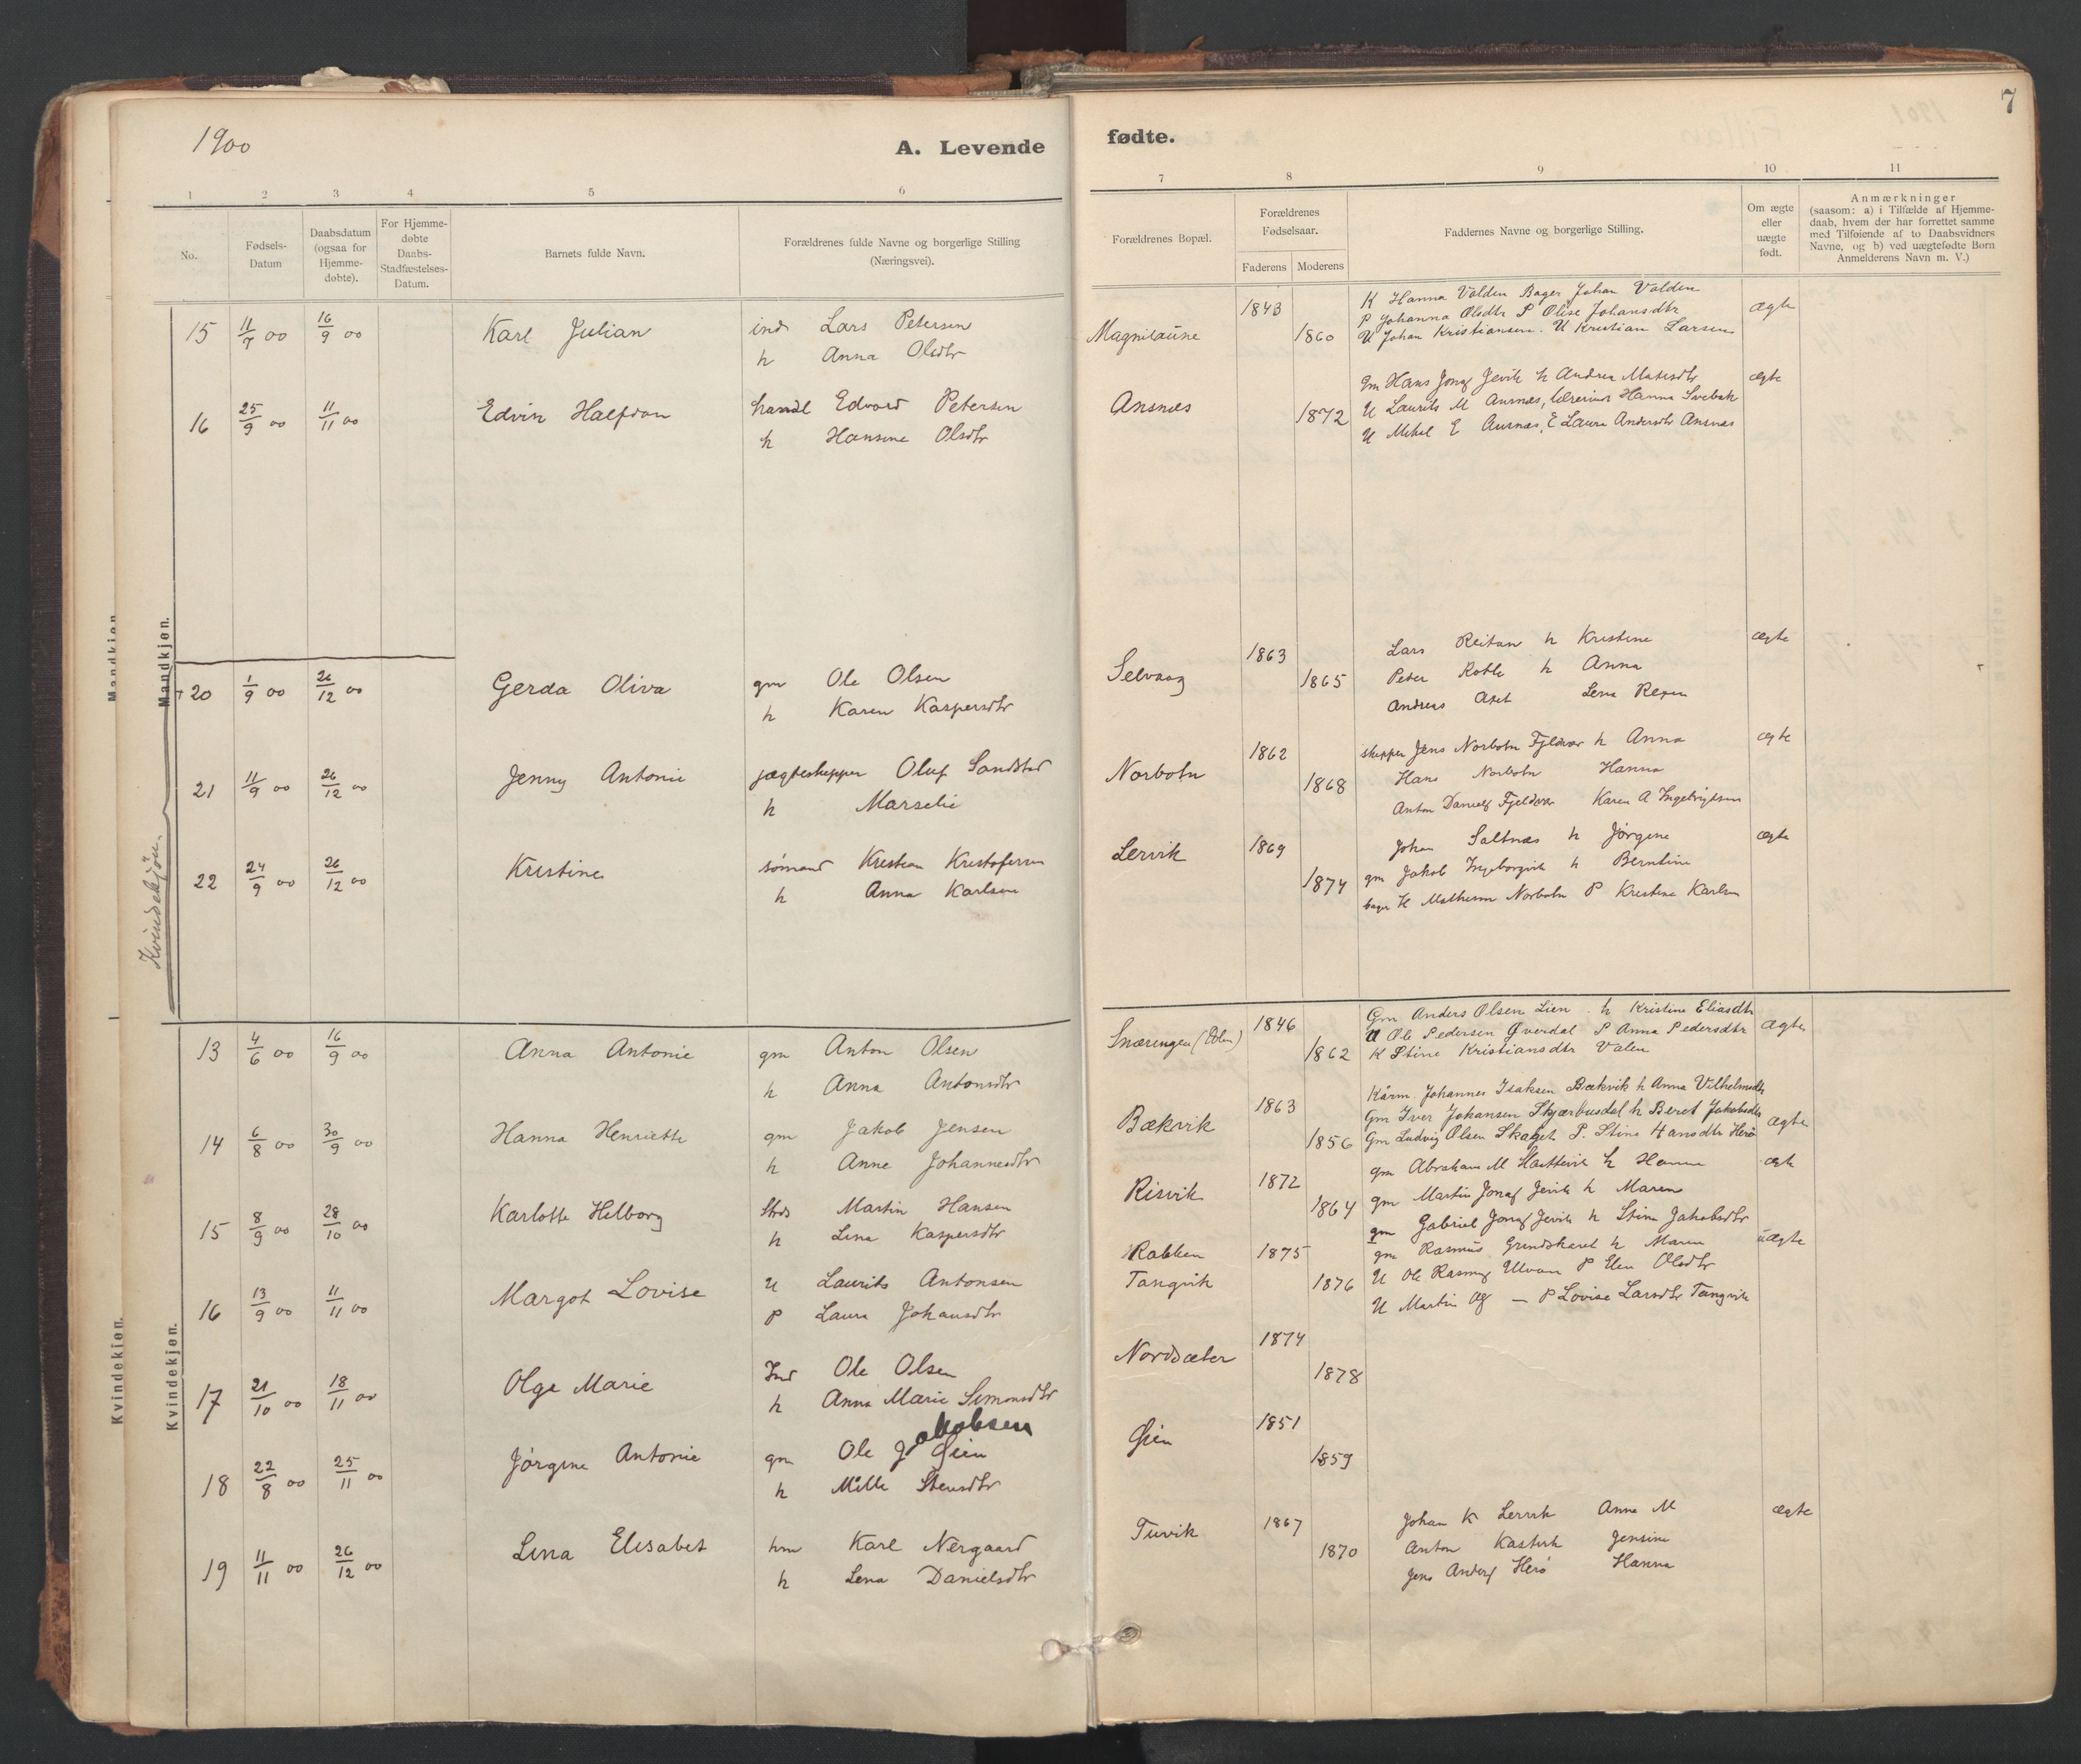 1900
A. Levende fødte.
7
1 2 3 4 5 6 7 8 9 10 11
No.
Fødsels-Datum
Daabsdatum (ogsaa for Hjemme-døbte).
For Hjemme-døbte Daabs-Stadfæstelses-Datum.
Barnets fulde Navn.
Forældrenes fulde Navne og borgerlige Stilling (Næringsvei).
Forældrenes Bopæl.
Forældrenes Fødselsaar.
Faderens Moderens
Faddernes Navne og borgerlige Stilling.
Om ægte eller uægte født.
Anmærkninger (saasom: a) i Tilfælde af Hjemme-daab, hvem der har forrettet samme med Tilføiende af to Daabsvidners Navne, og b) ved uægtefødte Børn Anmelderens Navn m. V.)
Mandkjøn.
Mandkjøn.
15 11/7 00 16/9 00 Karl Julian ind Lars Petersen
h Anna Olsdtr
Magnilaune 1843 1860
K Hanna Valden Bager Johan Valden
P Johanna Olsdtr P Olise Johansdtr
U Johan Kristiansen. U Kristian Larsen
ægte
16 25/9 00 11/11 00 Edvin Halfdan handl Edvard Petersen
h Hansine Olsdtr
Ansnes 1872
gm Hans Jonsf Jevik h Andrea Matesdtr
U Laurits M Ansnæs, lærerinde Hanna
U Mikal E Ansnæs, E Laura Andersdtr Ansnæs
ægte
+20 1/9 00 26/12 00 Gerda Oliva gm Ole Olsen
h Karen Kaspersdtr
Selvaag 1863 1865
Lars Reitan h Kristine
Peter h Anna
Andreas Lena
ægte
21 11/9 00 26/12 00 Jenny Antonie jægteskipper Oluf Sandstad
h Marselie
Norbotn 1862 1868
skipper Jens Norbotn Fjeldvær h Anna
Hans Norbotn Hanna
Anton Danielsf Fjeldvær Karen A Ingebrigtsen
ægte
22 24/9 00 26/12 00 Kristine sømand Kristian Kristofersen
h Anna Karlsen
Lervik 1869 1874
Johan Saltnæs h Jørgine
gm Jakob Ingeborgvik h Berntine
bager H Mathisen Norbotn P Kristine Karlsen
ægte
Kvindekjøn.
Kvindekjøn.
Kvindekjøn.
13 4/6 00 16/9 00 Anna Antonie gm Anton Olsen
h Anna Antonsdtr
Snæringen (Dolm) 1846 1862
Gm Anders Olsen Lien h Kristine Eliasdtr
U Ole Pedersen Øverdal P Anna Pedersdtr
K Stine Kristiansdtr Valen
Ægte
14 6/8 00 30/9 00 Hanna Henriette gm Jakob Jensen
h Anne Johannesdtr
Bækvik 1863 1856
Kårm. Johannes Isaksen Bækvik h Anna Vilhelmsdtr
Gm Iver Johansen Skjærbusdal h Beret Jakobsdtr
Gm Ludvig Olsen Skaget P. Stine Hansdtr Herø
Ægte
15 8/9 00 28/10 00 Karlotte Helborg Strds Martin Hansen
h Lina Kaspersdtr
Risvik 1872 1864
gm Abraham M Hattevik h Hanna
gm Martin Jonsf Jevik h Maren
gm Gabriel Jonsf Jevik h Stine Jakobsdtr
ægte
16 13/9 00 11/11 00 Margot Lovise U Laurits Antonsen
P Laura Johansdtr
Rabben
Tangvik
1875 1876
gm Rasmus Grindskaret h Maren
U Ole Rasmusf Ulvan P Elen Olsdtr
U Martin Olsf — P Lovise Larsdtr Tangvik
uægte
17 21/10 00 18/11 00 Olga Marie Ind Ole Olsen
h Anna Marie Simonsdtr
Nordsæter 1874 1878
18 22/8 00 25/11 00 Jørgine Antonie gm Ole Jakobsen Øien
h Mille Stensdtr
Øien 1851 1859
19 11/11 00 26/12 00 Lina Elisabet hm Karl Nergaard
h Lena Danielsdtr
Tuvik 1867 1870
Johan K Lervik Anne M
Anton Kastvik Jensine
Jens Andersf Herø Hanna
ægte